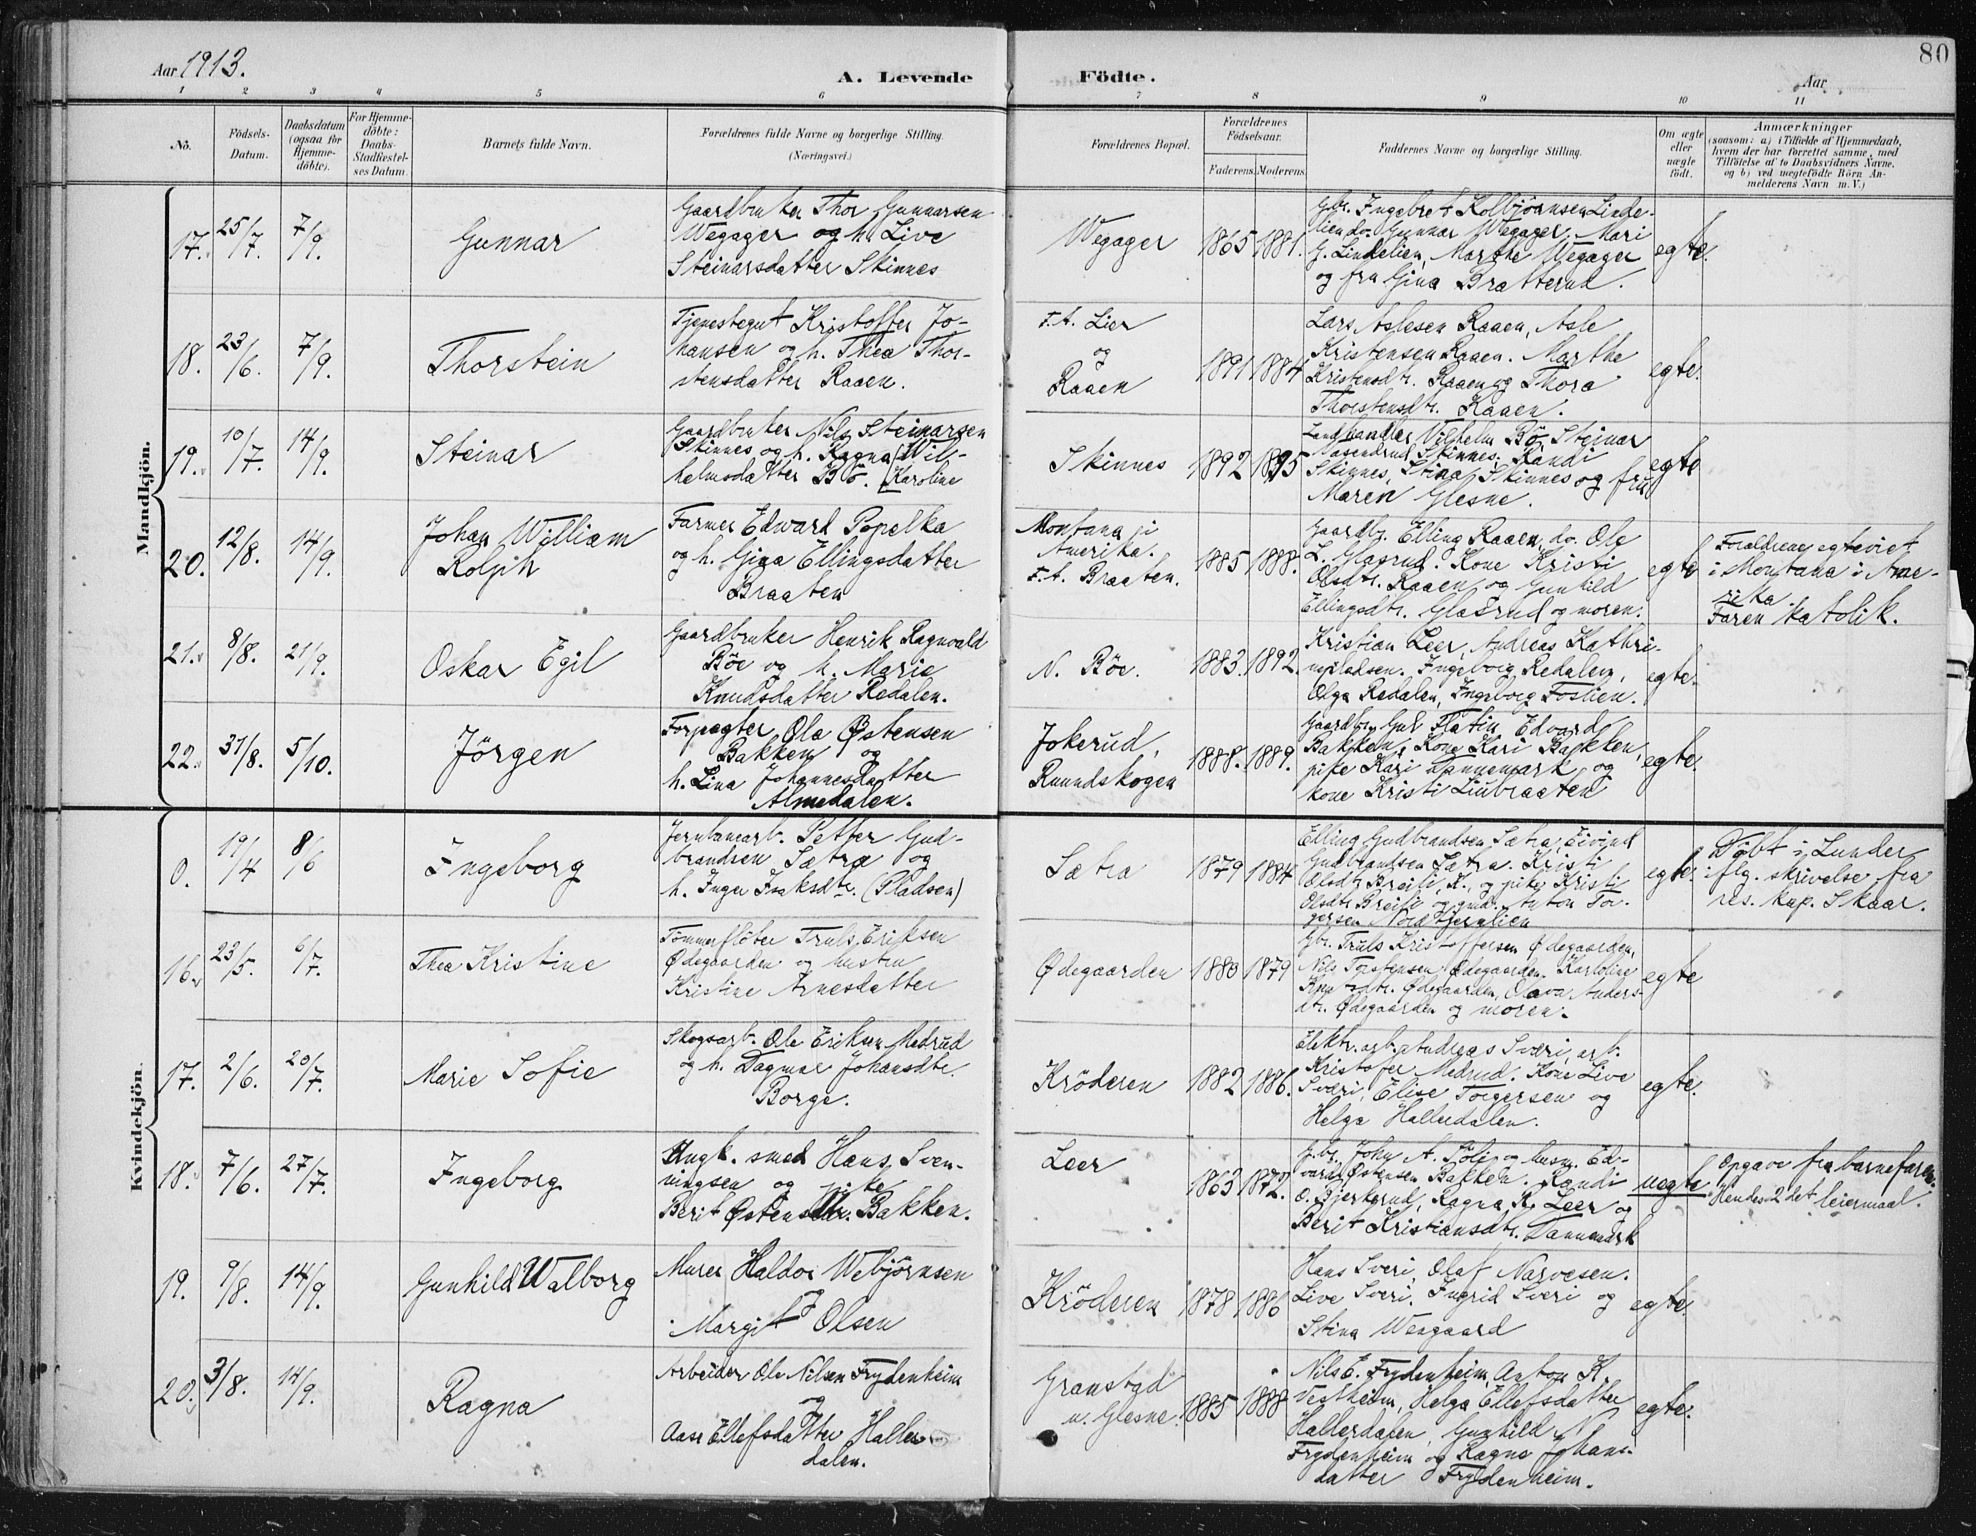 80
Aar 1913.
A. Levende Födte.
Aar
1 2 3 4 5 6 7 8 9 10 11
No.
Födsels-
Datum.
Daabsdatum
(ogsaa for
Hjemme-
döbte).
For Hjemme-
döbte:
Daabs-
Stadfæstel-
ses Datum.
Barnets fulde Navn.
Forældrenes fulde Navne og borgerlige Stilling.
(Næringsvei.)
Forældrenes Bopæl.
Forældrenes
Födselsaar.
Faderens. Moderens.
Faddernes Navne og borgerlige Stilling.
Om ægte
eller
uægte
födt.
Anmærkninger
(saasom: a) i Tilfælde af Hjemmedaab,
hvem der har forrettet samme, med
Tilföielse af to Daabsvidners Navne,
og b) ved uægtefödte Börn An-
melderens Navn m. V.)
Mandkjön.
17. 25/7. 7/9. Gunnar
Gaardbruker Thor Gunnarsen
Wegager og h. Live
Steinarsdatter Skinnes
Wegager 1865 1881.
Gbr. Ingebret Kolbjörnsen Linde-
lien do. Gunnar Wegager. Mari
G. Lindelien, Marthe Wegager
og fru Gina Bratterud.
egte.
18. 23/6. 7/9. Thorstein
Tjenestegut Kristoffer Jo-
hansen og h. Thea Thor-
stensdatter Raaen.
F.A. Lier
og
Raaen
1891 1884
Lars Aslesen Raaen, Asle
Kristensen Raaen. Marthe
Kristensdtr. Raaen og Thora
Thorstensdtr. Raaen.
egte.
19. 10/7. 14/9. Steinar
Gaardbruker Nils Steinarsen
Skinnes og h. Ragna (Wil-
helmsdatter Bö. (Karoline
Skinnes 1892 1895
Landhandler Vilhelm Bö, Steinar
Aasendrud Skinnes, Randi
Skinnes, Stina Skinnes og fru
Maren Glesne.
egte
20. 12/8. 14/9. Johan William
Rolph
Farmer Edward Popelka
og h. Gina Ellingsdatter
Braaten
Montana i
Amerika.
F.A. Braaten.
1885 1888.
Gaardbr. Elling Raaen, do. Ole
L. Glasrud. Kone Kristi
Olsdtr. Raaen og Gunhild
Ellingsdtr. Glasrud og moren.
egte
Foraldrene egteviet
i Montana i Ame-
rika
Faren katolik.
21. 8/8. 21/9. Oskar Egil
Gaardbruker Henrik Ragnvald
Böe og h. Marie
Knudsdatter Redalen.
N. Böe. 1883. 1892.
Kristian Leer, Andreas Kathri-
nepladsen. Ingeborg Redalen,
Olga Redalen, Ingeborg Foslien.
egte.
22. 31/8. 5/10. Jörgen
Forpagter Ole Østensen
Bakken og
h. Lina Johannesdatter
Almedalen.
Jokerud,
Ruundskogen
1888. 1889.
Gaardbr. Gul Flatin, Edvard
Bakken, Kone Kari Bakken,
pike Kari Dannemark og
kone Kristi Liubraaten
egte.
Kvindekjön.
0. 19/4 8/6 Ingeborg
Jernbanearb. Petter Gud-
brandsen Sætra og
h. Inger Isaksdtr. (Pladsen)
Sætra 1879 1884
Elling Gudbrandsen Sætra, Eivind
Gudbrandsen Sætra. Kristi
Olsdtr Breili, K., og pike Kristi
Olsdtr Breili og gmd. Anton Tor-
gersen Nord Gjernlien
egte.
Döbt i Lunder
iflg. skrivelse fra
res. kap. Skaar.
16. 23/5. 6/7. Thea Kristine
Tömmerflöter Truls Eriksen
Ødegaarden og hustru
Kristine Arnesdatter
Ødegaarden 1880 1879
Gbr. Truls Kristoffersen Ødegaarden,
Nils Torstensen Ødegaarden. Karoline
Knudsdtr. Ødegaarden, Olava Anders-
dtr. Ødegaarden og moren.
egte
17. 2/6. 20/7. Marie Sofie
Skogsarb. Ole Eriksen Medrud
og h. Dagmar Johansdtr.
Borge.
Kröderen 1882 1886.
Elektr.arb. Andreas Sværi, arb.
Kristofer Medrud. Kone Live
Sværi, Elise Torgersen og
Helga Hallerdalen.
egte.
18. 7/6. 27/7. Ingeborg
Ungk. smed Hans Sven-
ningsen og pike
Berit Østensdtr. Bakken.
Leer 1863 1872.
Gbr. John A. Foli og husm. Ed-
vard Østensen Bakken. Randi
O. Bjerkerud, Ragna K. Leer og
Berit Kristiansdtr. Dannemark
uegte
Opgave fra barnefaren.
Hendes 2det leiermaal.
19. 9/8. 14/9. Gunhild Walborg
Murer Haldor Webjörnsen
og
Margit Olsen
Kröderen 1878 1886
Hans Sveri, Olaf Narvesen.
Live Sveri, Ingrid Sveri og
Stina Wengaard
egte.
20. 3/8. 14/9. Ragna
Arbeider Ole Nilsen Frydenheim
og
Aase Ellefsdatter Haller-
dalen.
Granstad
u. Glesne.
1885 1888
Nils E. Frydenheim, Anton K.
Vestheim, Helga Ellefsdatter
Hallerdalen, Gunhild N.
Frydenheim og Ragna Johans-
datter Frydenheim.
egte.